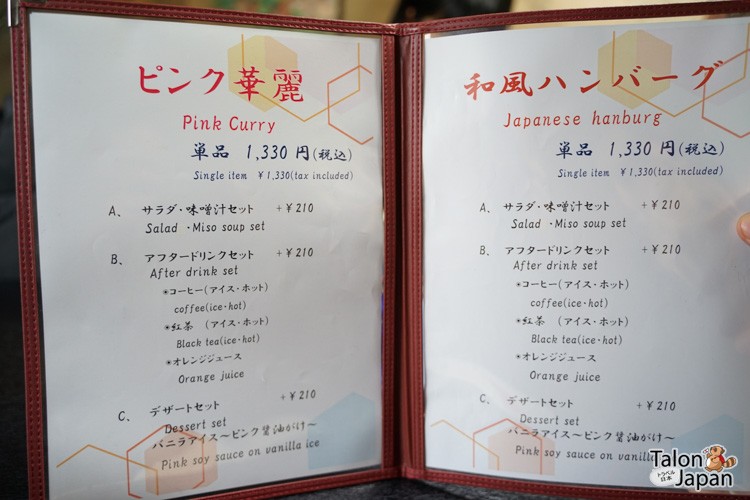 ピンク華麗
Pink Curry
単品 1,330 円(税込)
Single item ¥1,330(tax included)
A、 サラダ・味噌汁セット +¥210
Salad ・Miso soup set
B、 アフタードリンクセット +¥210
After drink set
*コーヒー(アイス・ホット)
coffee(ice・hot)
*紅茶 (アイス・ホット)
Black tea(ice・hot)
*オレンジジュース
Orange juice
C、 デザートセット +¥210
Dessert set
バニラアイス～ピンク醤油がけ～
Pink soy sauce on vanilla ice
和風ハンバーグ
Japanese hanburg
単品 1,330 円(税込)
Single item ¥1,330(tax included)
A、 サラダ・味噌汁セット +¥210
Salad ・Miso soup set
B、 アフタードリンクセット +¥210
After drink set
*コーヒー(アイス・ホット)
coffee(ice・hot)
*紅茶 (アイス・ホット)
Black tea(ice・hot)
*オレンジジュース
Orange juice
C、 デザートセット +¥210
Dessert set
バニラアイス～ピンク醤油がけ～
Pink soy sauce on vanilla
Talon
トラベル
日本
Japan